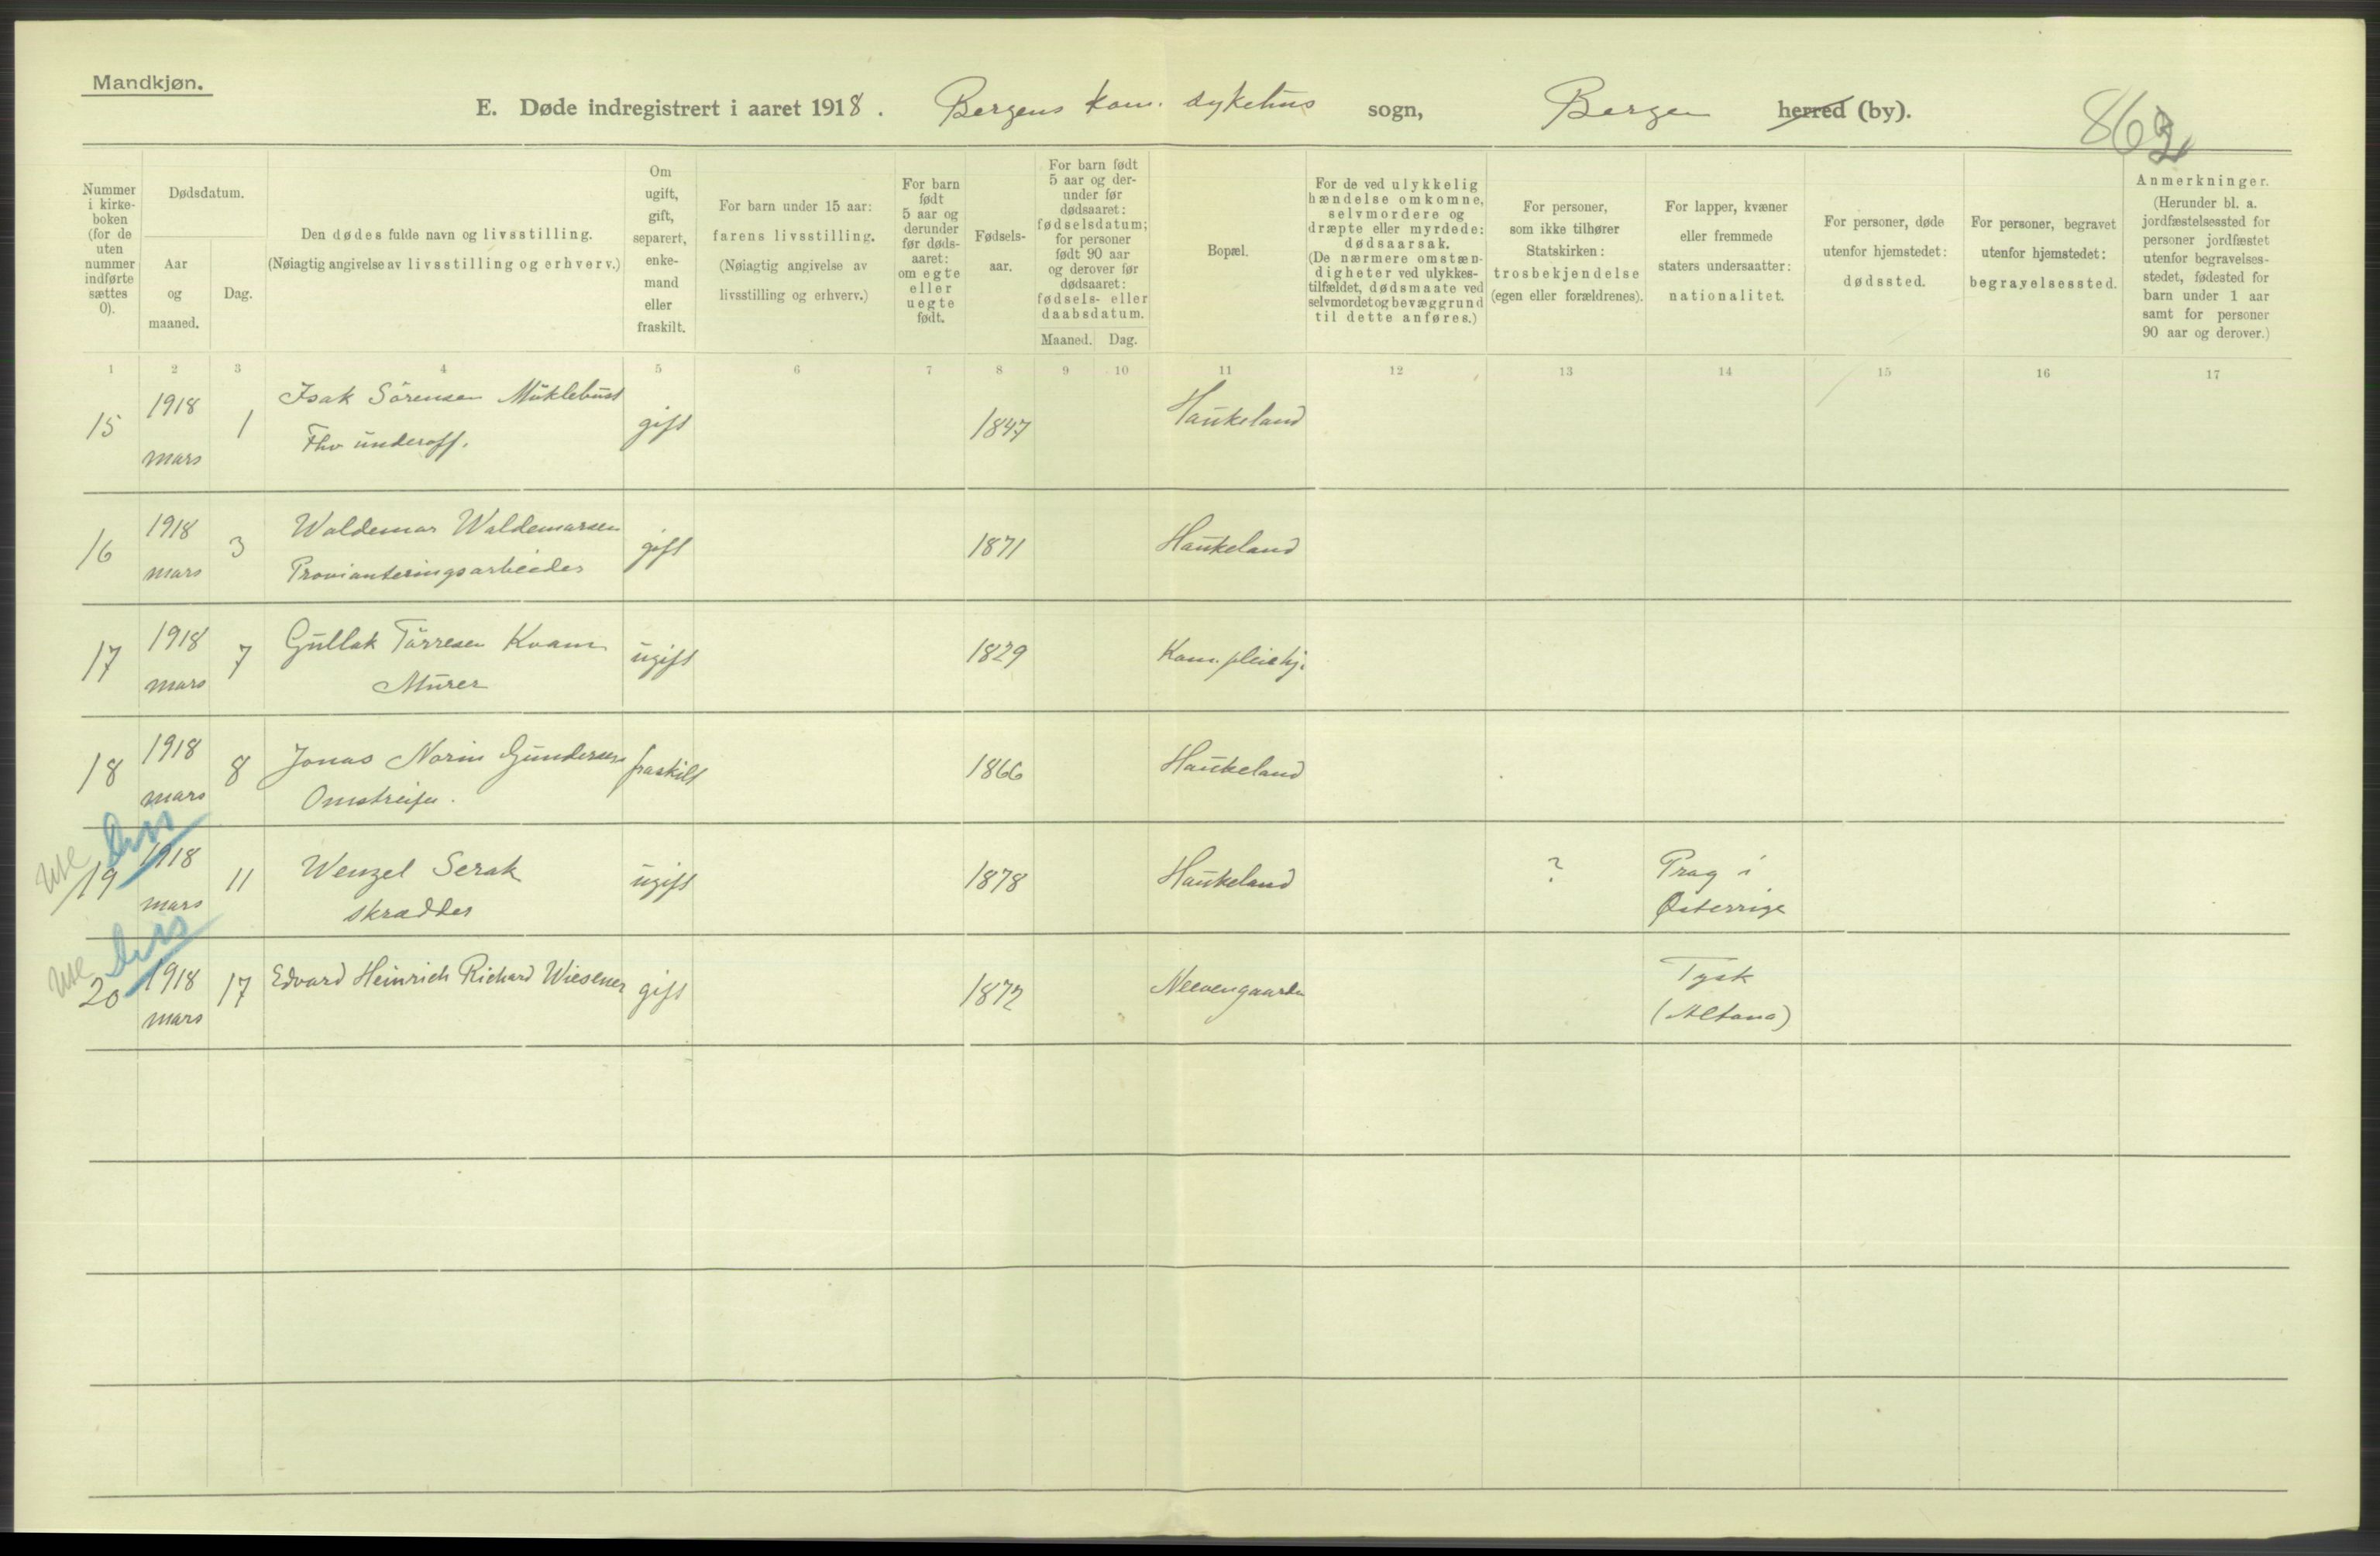 Mandkjøn.
E. Døde indregistrert i aaret 1918. Bergens kom. sykehus sogn, Bergen herred (by).
86
Nummer i kirkeboken (for de uten nummer indførte sættes 0).
Dødsdatum.
Aar og maaned.
Dag.
Den dødes fulde navn og livsstilling.
(Nøiagtig angivelse av livsstilling og erhverv.)
Om ugift, gift, separert, enkemand eller fraskilt.
For barn under 15 aar: farens livsstilling.
(Nøiagtig angivelse av livsstilling og erhverv.)
For barn født 5 aar og derunder før dødsaaret: om egte eller uegte født.
Fødselsaar.
For barn født 5 aar og derunder før dødsaaret: fødselsdatum; for personer født 90 aar og derover før dødsaaret: fødsels- eller daabsdatum.
Maaned. Dag.
Bopæl.
For de ved ulykkelig hændelse omkomne, selvmordere og dræpte eller myrdede: dødsaarsak.
(De nærmere omstændigheter ved ulykkestilfældet, dødsmaate ved selvmordet og bevæggrund til dette anføres.)
For personer, som ikke tilhører Statskirken: trosbekjendelse (egen eller forældrenes).
For lapper, kvæner eller fremmede staters undersaatter: nationalitet.
For personer, døde utenfor hjemstedet: dødssted.
For personer, begravet utenfor hjemstedet: begravelsessted.
Anmerkninger.
(Herunder bl. a. jordfæstelsessted for personer jordfæstet utenfor begravelsesstedet, fødested for barn under 1 aar samt for personer 90 aar og derover.)
1 2 3 4 5 6 7 8 9 10 11 12 13 14 15 16 17
15 1918 mars 1 Isak Sörensen Müklebust gift 1847 Haukeland
Fhv underoff.
16 1918 mars 3 Waldemar Waldemarsen gift 1871 Haukeland
Provianteringsarbeider
17 1918 mars 7 Gullak Törresen Kvam ugift 1829 Kom. pleiehj.
Murer
18 1918 mars 8 Jonas Norin Gundersen fraskilt 1866 Haukeland
Omstreifer.
19 1918 mars 11 Wenzel Serak ugift 1878 Haukeland ? Prag i
skrædder Østerrige
20 1918 mars 17 Edvard Heinrich Richard Wiesener gift 1872 Neevengaarden Tysk
(Altona)